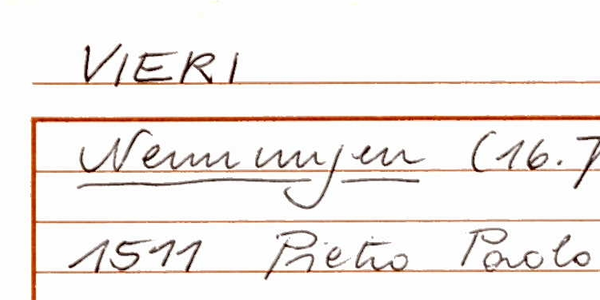 VIERI
Nennungen (16.
1511 Pietro Paolo